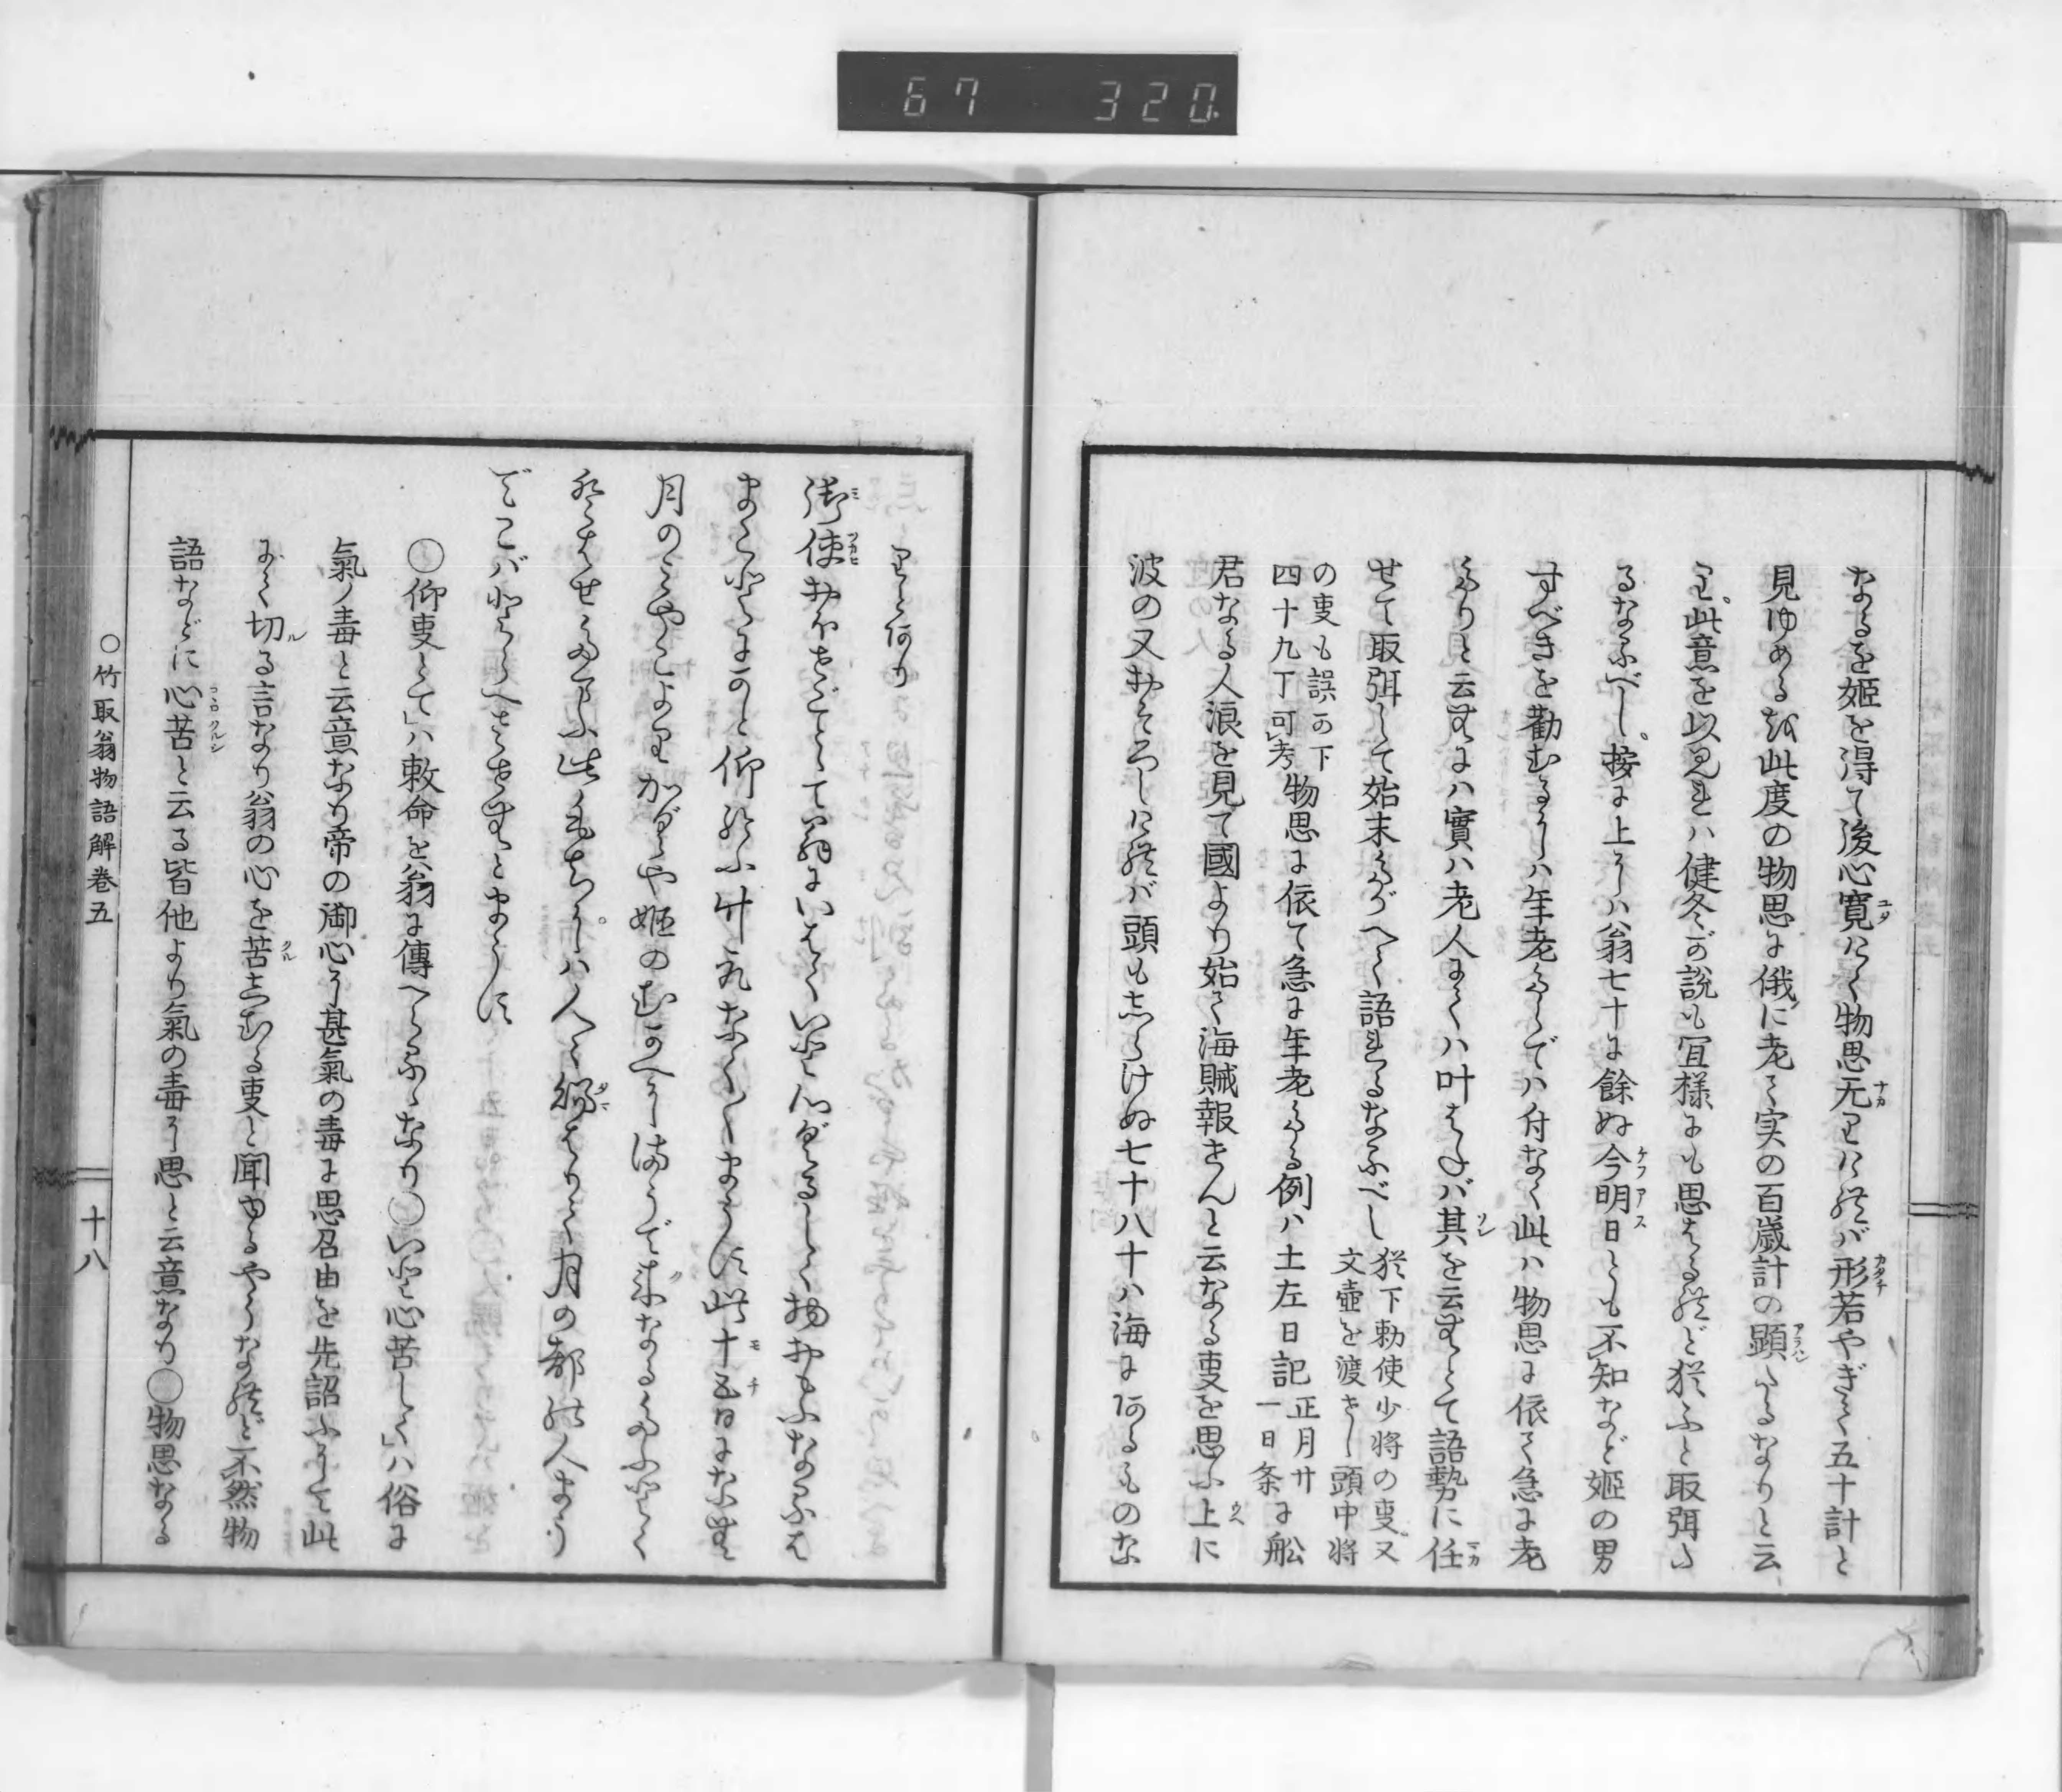 67 320
なるを姫を得て後心寛にて物思无りければ形若やぎて五十計と
見ゆめるを此度の物思に俄に老て実の百歳計の顕たるなりと云
り此意を以見れハ健冬が説も宜様にも思はるれど猶ふと取弭た
るなるべし按に上にハ翁七十に餘ぬ今明日とも不知など姫の男
すべきを勸むるにハ年老たらでハ付なく此ハ物思に依て急に老
たりと云むにハ實ハ老人にてハ叶はねバ其を云むとて語勢に任
せて取弭して始末たがへて語れるなるべし猶下勅使少将の㕝又
文壷を渡しし頭中将
の㕝も誤か下
四十九丁可考物思に依て急に年老たる例ハ土左日記正月廿
一日条に舩
君なる人浪を見て國より始て海賊報せんと云なる㕝を思ふ上に
波の又おそろしければ頭も志らけぬ七十八十ハ海にあるものな
りとあり
御使おほせごととて翁にいはくいと心ぐるしく物おもふなるは
まことにかと仰給ふ竹取なくなくまうす此十五日になむ
月のみやこよりかぐや姫のむかへにまうで来なるたふとく
とはせたまふ此もちにハ人々給はりて月の都の人まう
でこバとらへさせむとまうす
○仰㕝とて」ハ敕命を翁に傳へらるゝなり○いと心苦しく」ハ俗に
氣ノ毒と云意なり帝の御心に甚氣の毒に思召由を先詔ふにて此
にて切る言なり翁の心を苦しむる㕝と聞ゆるやうなれど不然物
語などに心苦と云る皆他より氣の毒に思と云意なり○物思なる
○竹取翁物語解巻五
十八